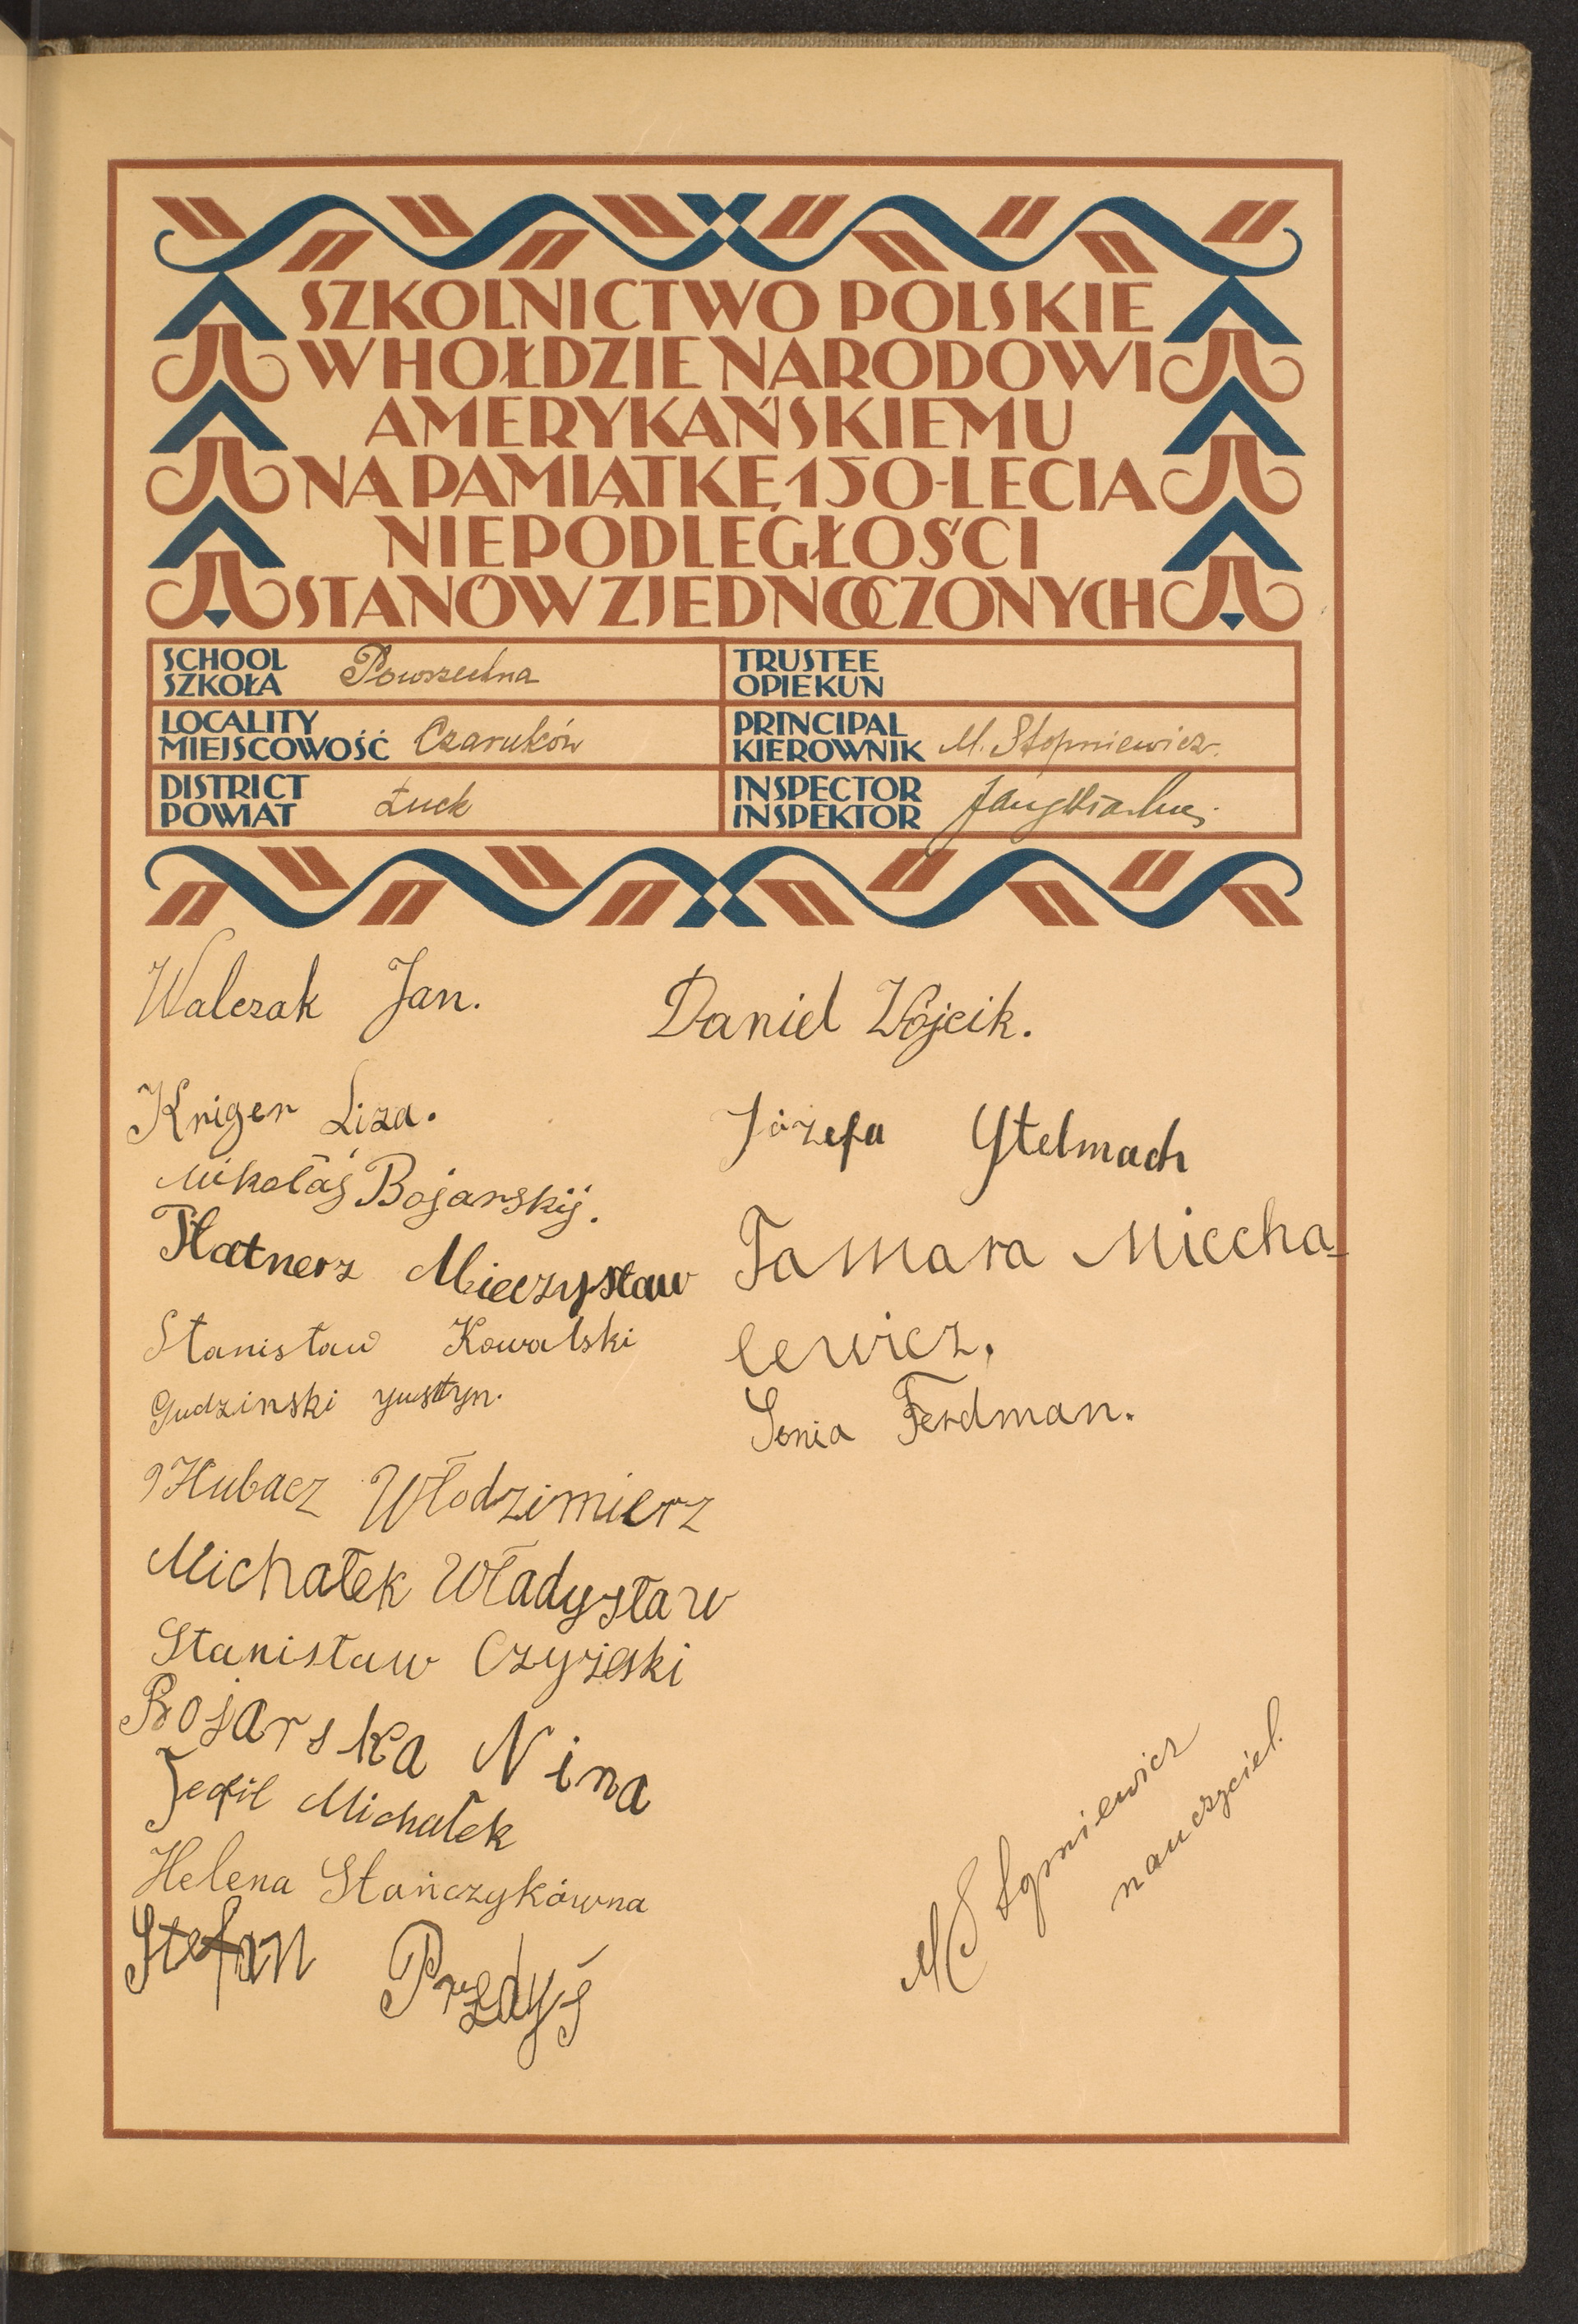 SZKOLNICTWO POLSKIE
W HOŁDZIE NARODOWI
AMERYKAŃSKIEMU
NA PAMIĄTKĘ 150-LECIA
NIEPODLEGŁOŚCI
STANÓW ZJEDNOCZONYCH
SCHOOL
SZKOŁA Powszechna
TRUSTEE
OPIEKUN
LOCALITY
MIEJSCOWOŚĆ Czaruków
PRINCIPAL
KIEROWNIK M. Stopniewicz.
DISTRICT
POWIAT Łuck
INSPECTOR
INSPEKTOR
Walczak Jan.
Kriger Liza.
Mikołaj Bojarskij.
Płatnerz Mieczysław
Stanisław Kowalski
Gudzinski yustyn.
Hubacz Włodzimierz
Michałek Władysław
Stanisław
Bojarska Nina
Michałek
Helena Stańczykówna
Stefan
Daniel Wójcik.
Józefa Stelmach
Tamara Miecha-
lewicz.
Sonia Ferdman.
M Stopniewicz
nauczyciel.